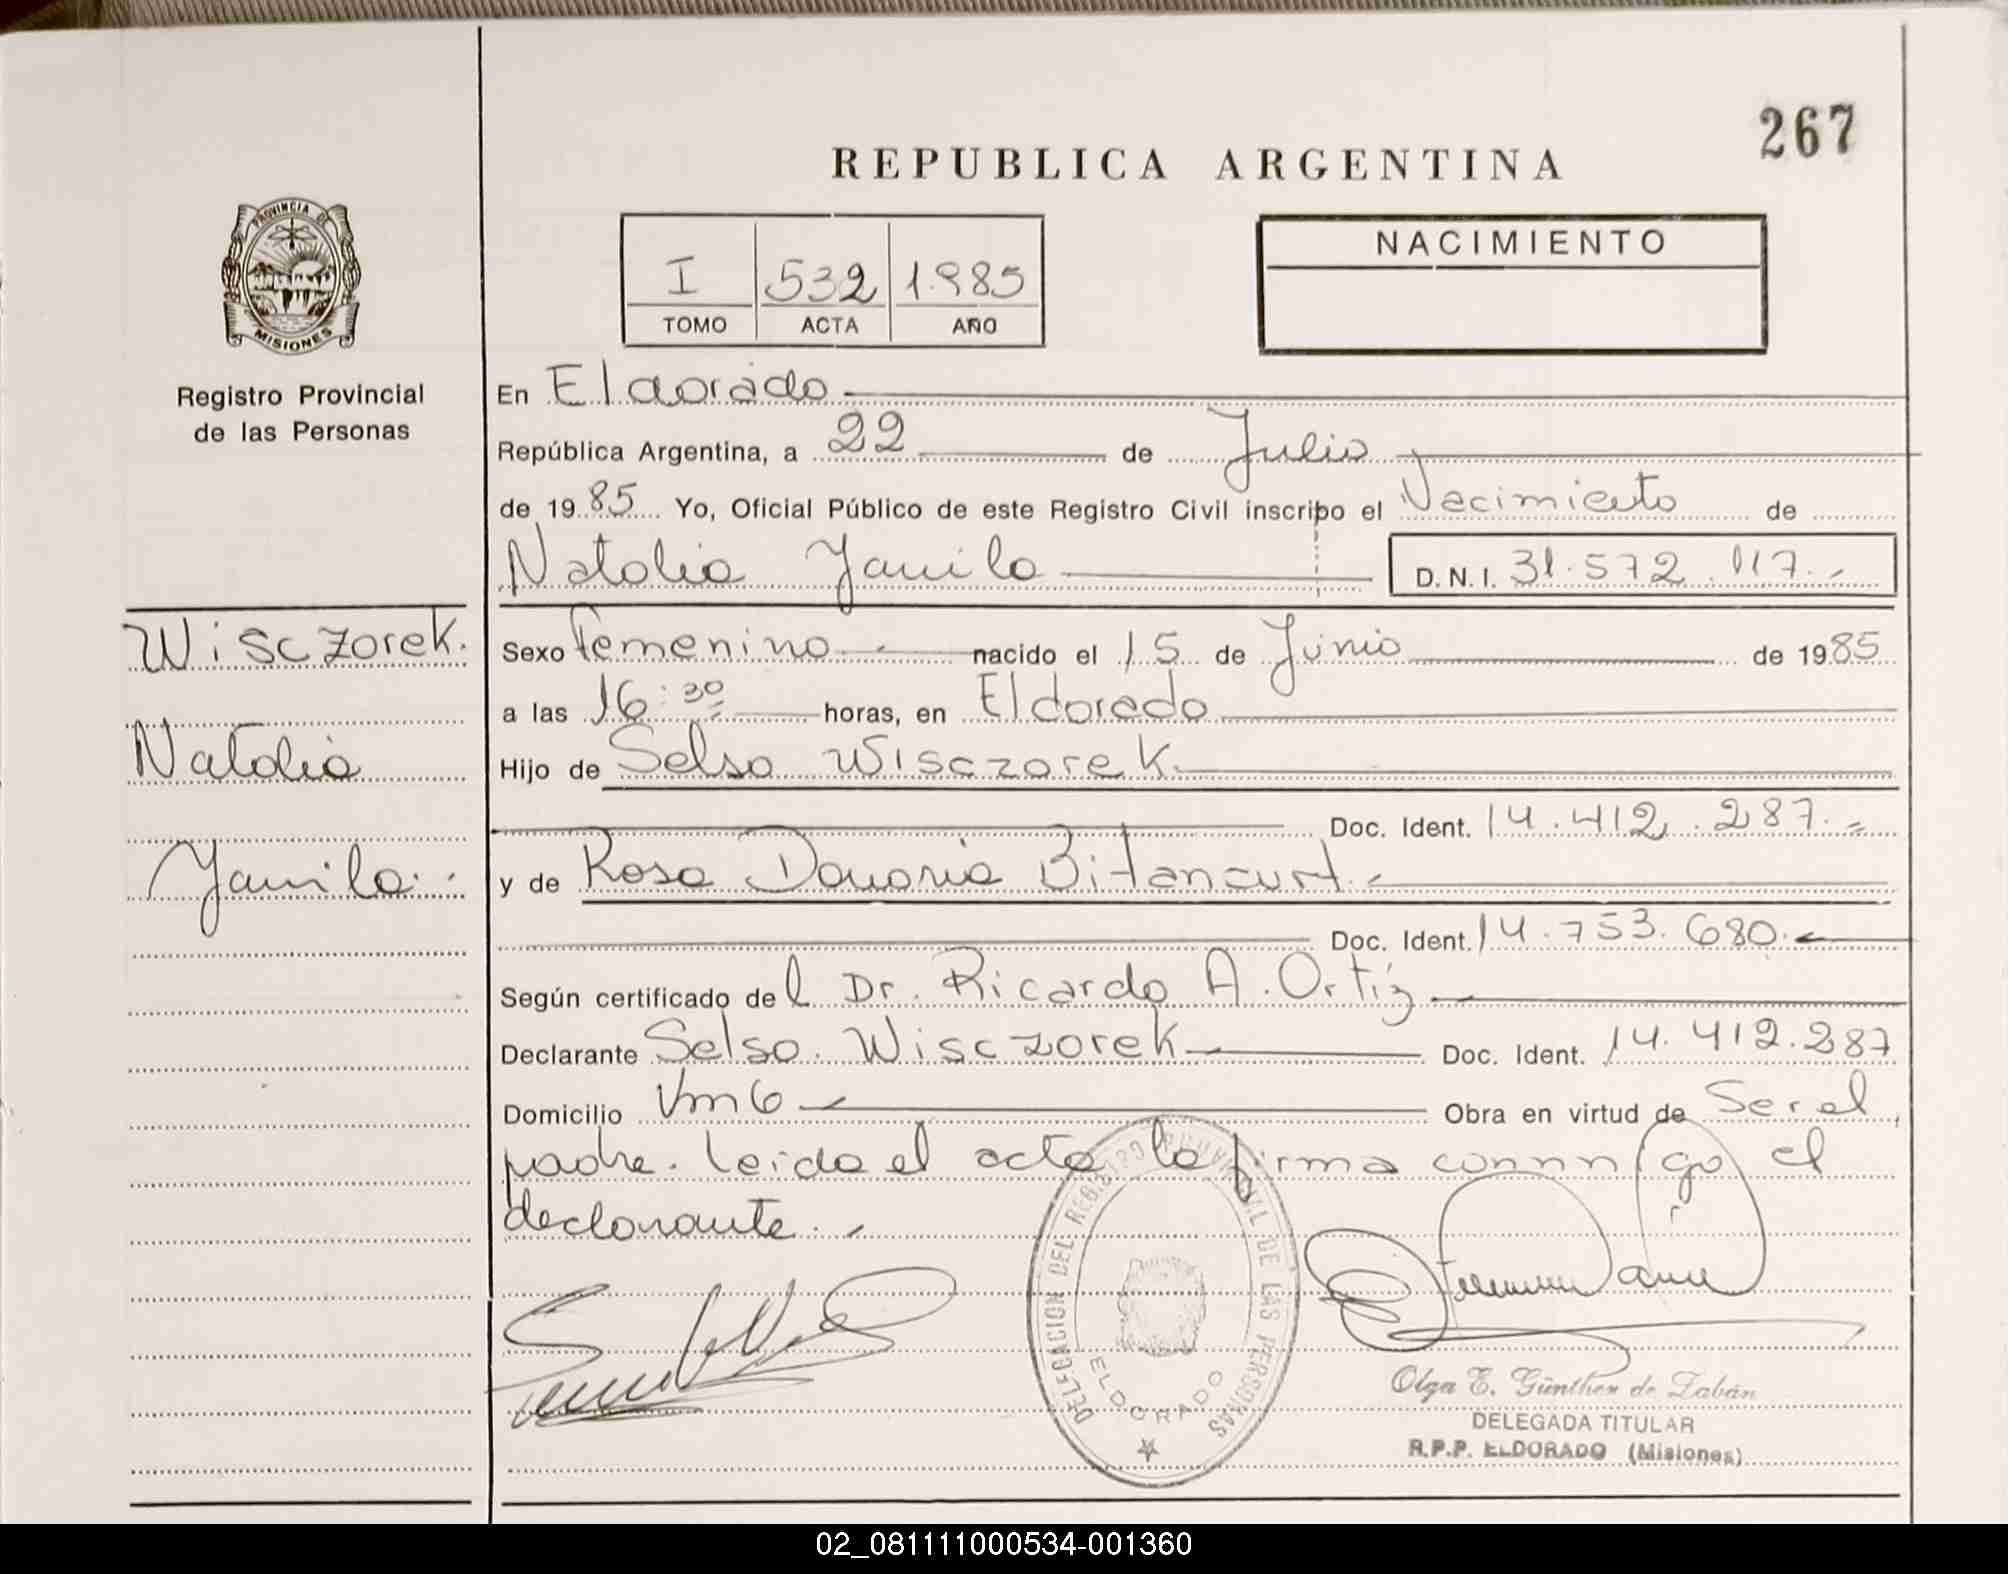 267
REPUBLICA ARGENTINA
PROVINCIA DE
MISIONES
Registro Provincial
de las Personas
I 532 1.985
TOMO ACTA AÑO
NACIMIENTO
En Eldorado
República Argentina, a 22 de Julio
de 1985 Yo, Oficial Público de este Registro Civil inscribo el Nacimiento de
Natalia Yamila D.N.I. 31.572.117.-
Wisczorek.
Natalia
Yamila.-
Sexo femenino nacido el 15 de Junio de 1985
a las 16:30 horas, en Eldorado
Hijo de Selso Wisczorek
Doc. Ident. 14.412.287.=
y de Rosa Bitancurt.-
Doc. Ident. 14.753.680.-
Según certificado del Dr. Ricardo A. Ortíz
Declarante Selso Wisczorek Doc. Ident. 14.412.287
Domicilio Km 6 Obra en virtud de Ser el
padre. Leída el acta la firma connnigo el
declarante.-
DELEGACION DEL REGISTRO PROVINCIAL DE LAS PERSONAS
ELDORADO
Olga E. Günther de Zabán
DELEGADA TITULAR
R.P.P. ELDORADO (Misiones)
02_081111000534-001360